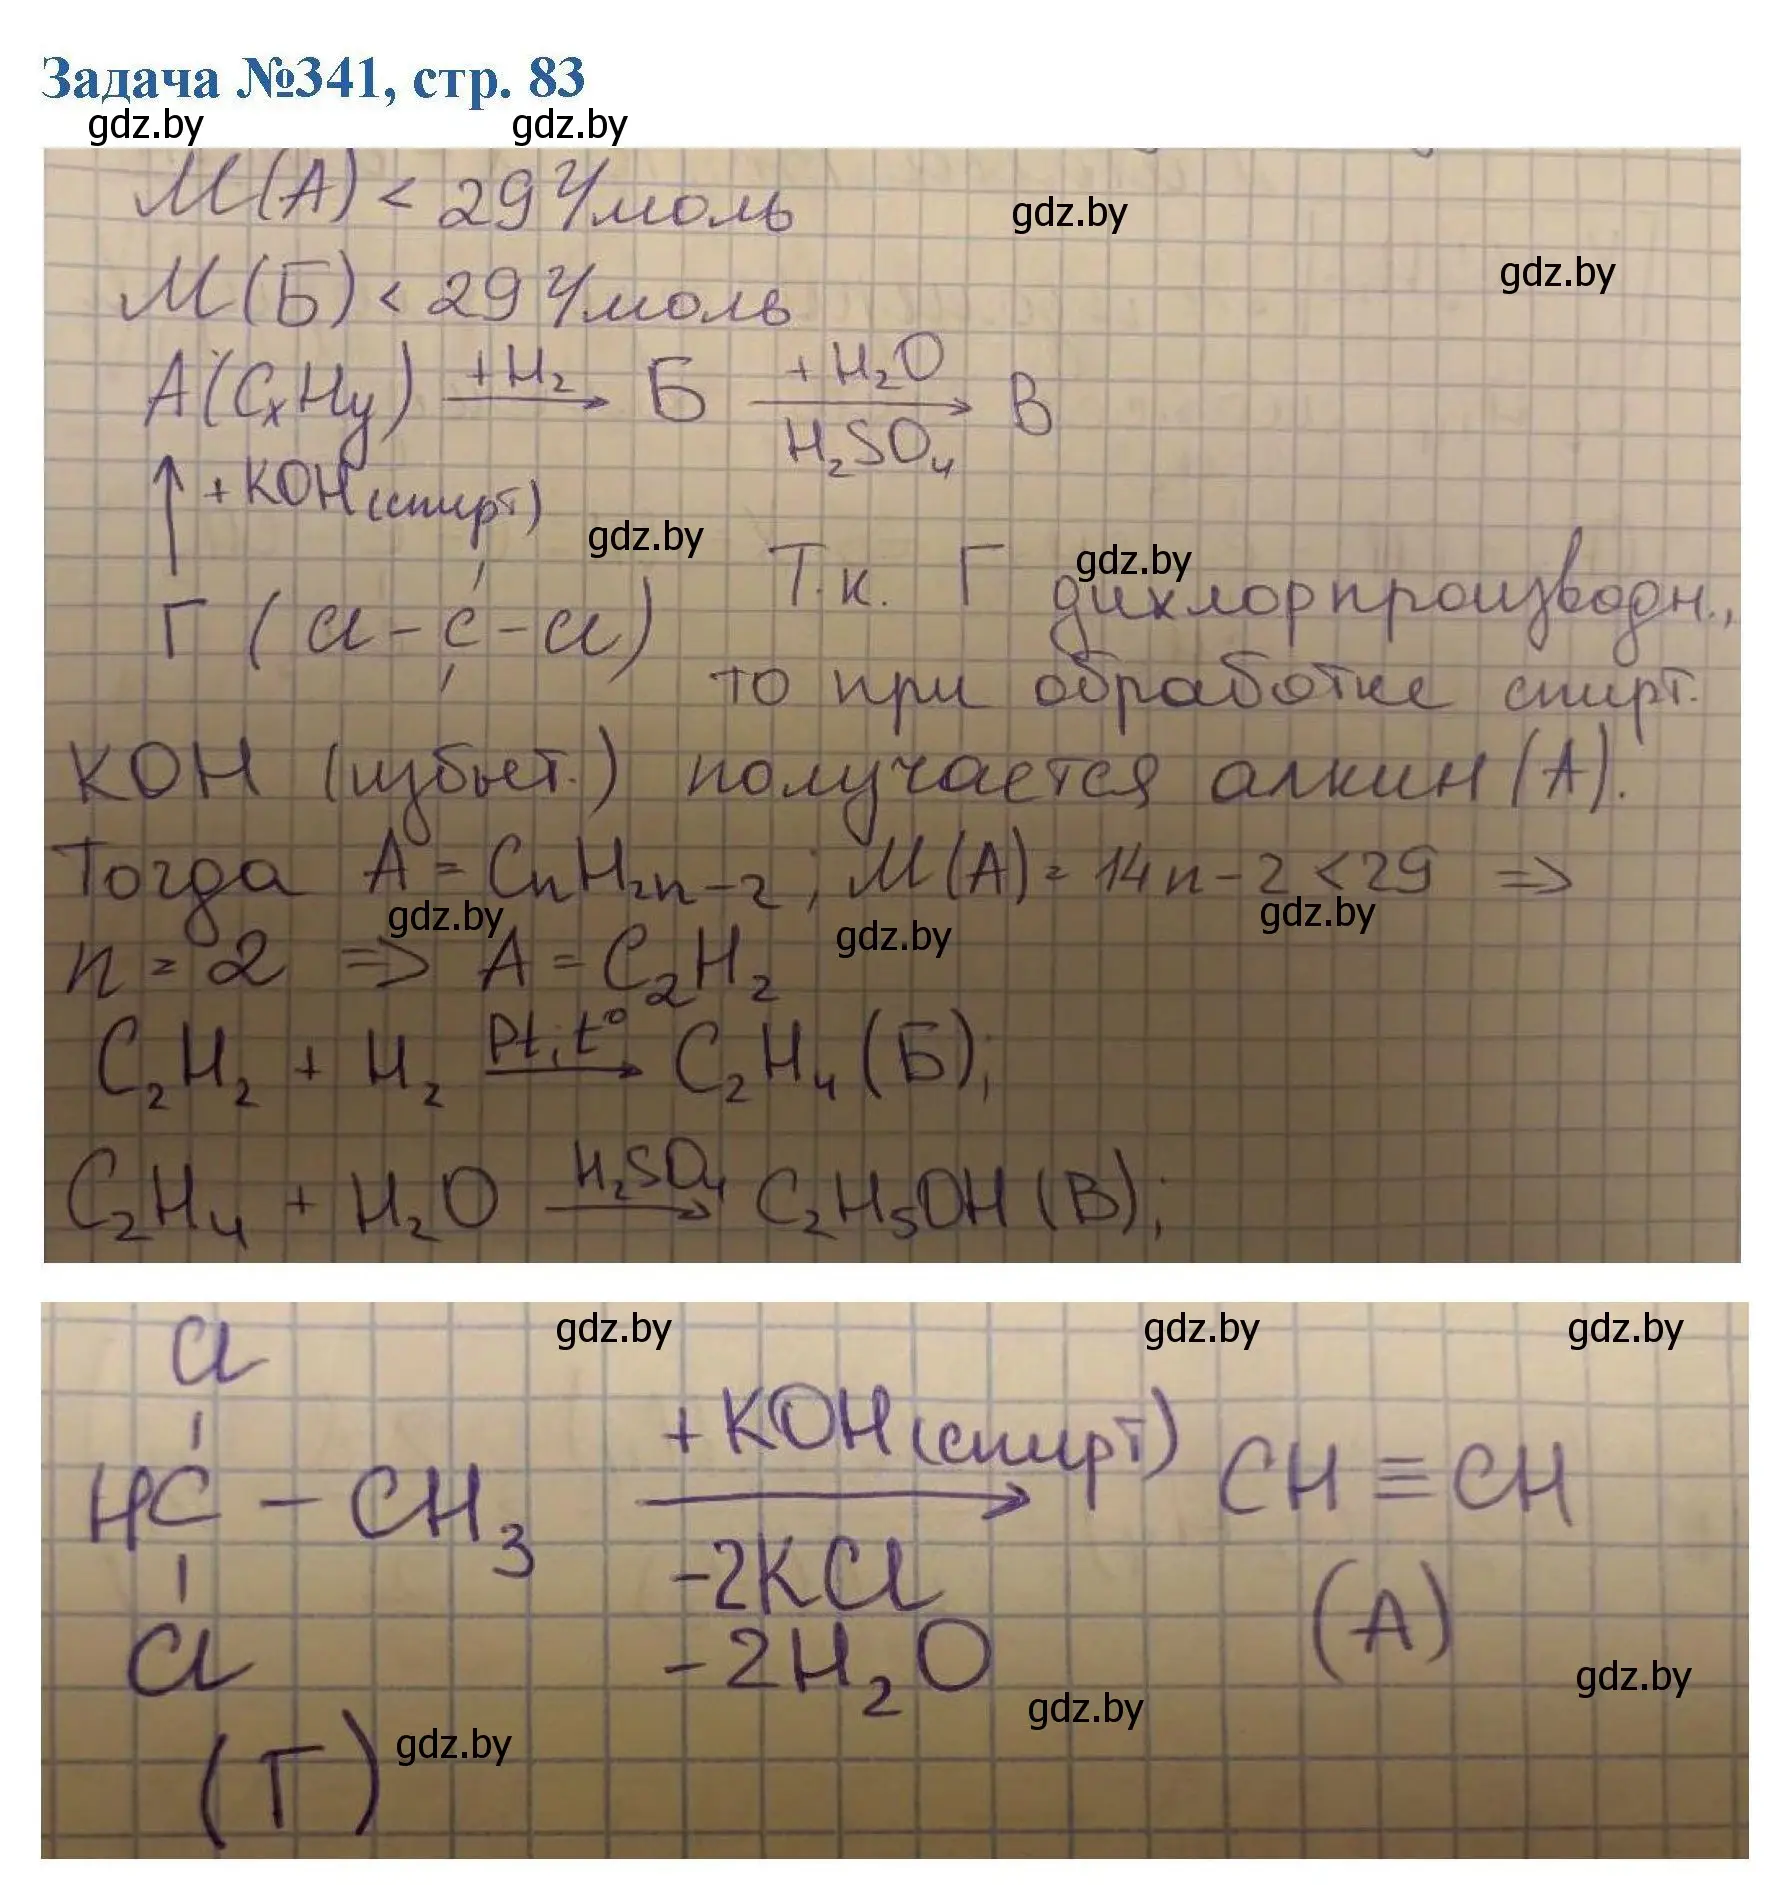 Задача №341, стр. 83
gdz.by gdz.by
М(А) < 29 г/моль
gdz.by
М(Б) < 29 г/моль
gdz.by
А(CxHy) +H2→ Б +H2O→ В
H2SO4
↑ +KOH(спирт)
gdz.by gdz.by
Г (Cl-C-Cl) Т.к. Г дихлорпроизводн.,
то при обработке спирт.
KOH (избыт.) получается алкин (А).
Тогда А = CnH2n-2; М(А) = 14n-2 < 29 =>
gdz.by gdz.by gdz.by
n = 2 => А = C2H2
C2H2 + H2 Pt, t°→ C2H4 (Б);
C2H4 + H2O H2SO4→ C2H5OH (В);
gdz.by gdz.by gdz.by
Cl
+KOH(спирт)
HC - CH3 → CH ≡ CH
-2KCl
Cl -2H2O (А)
gdz.by gdz.by
(Г) gdz.by